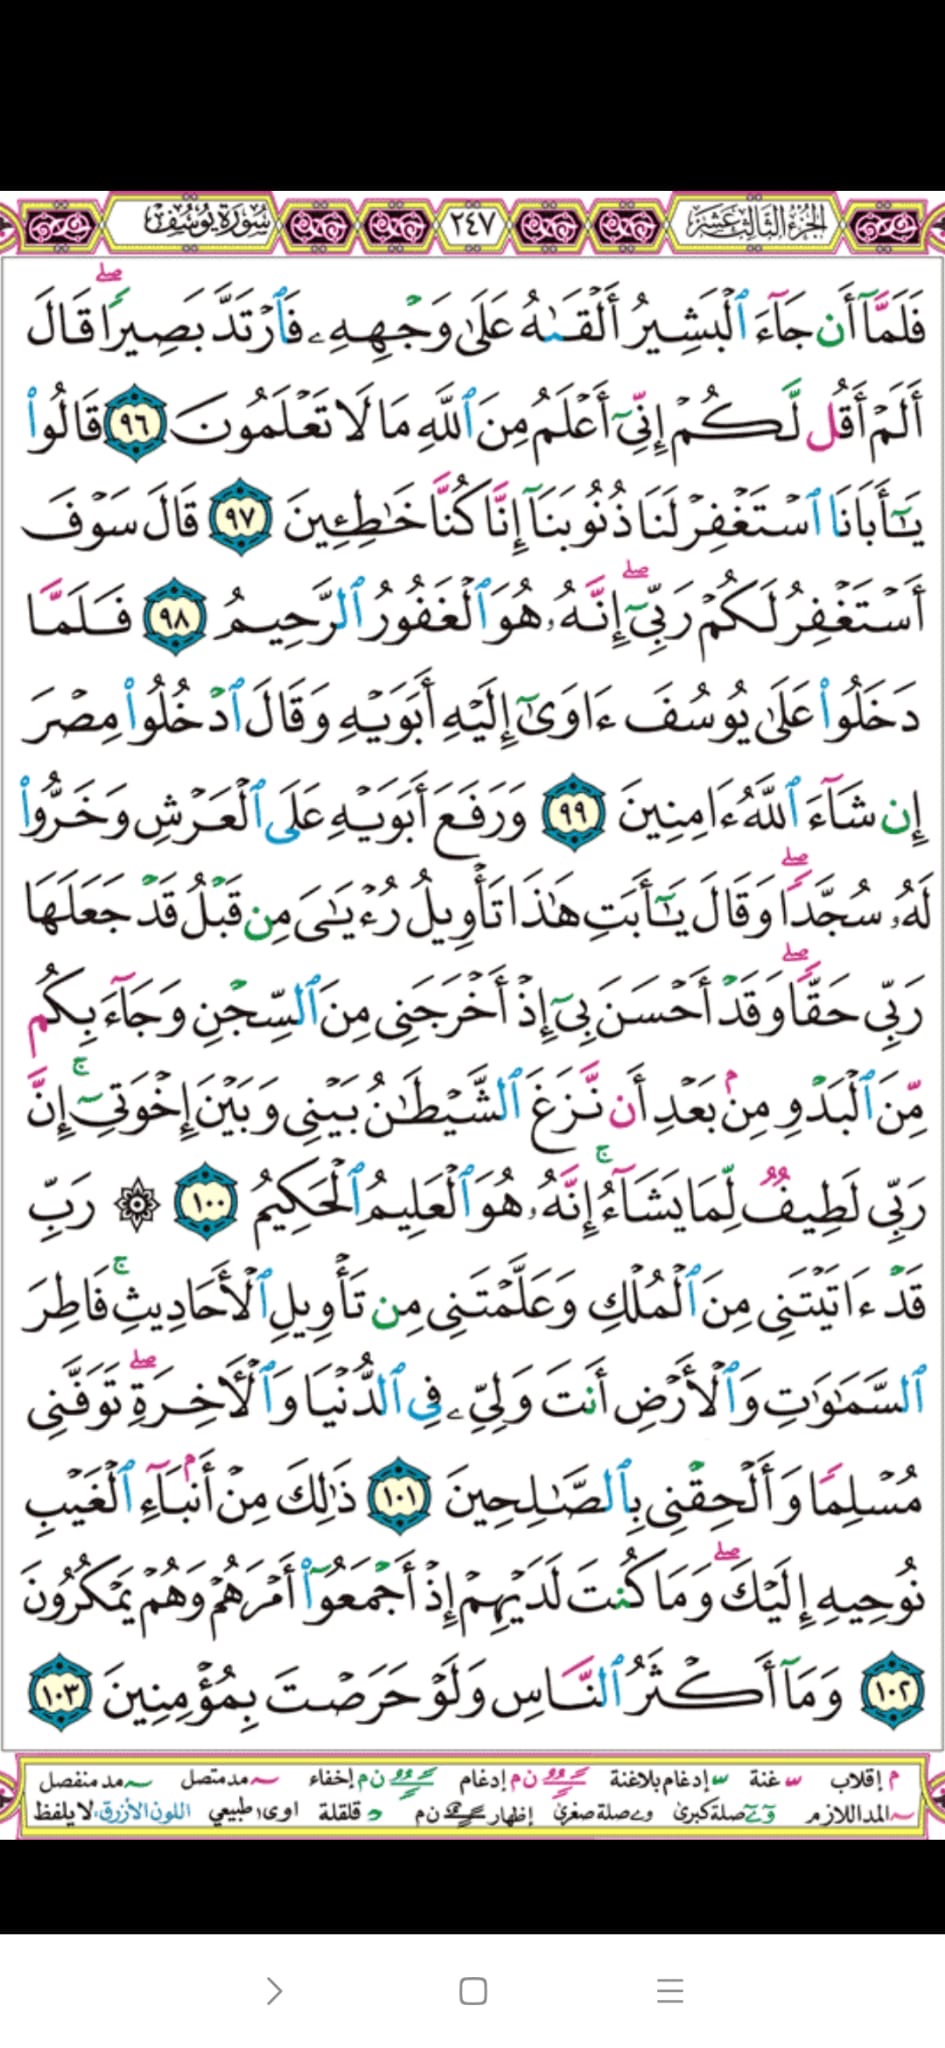 الجزء الثالث عشر ٢٤٧ سورة يوسف
فَلَمَّآ أَن جَآءَ ٱلْبَشِيرُ أَلْقَىٰهُ عَلَىٰ وَجْهِهِۦ فَٱرْتَدَّ بَصِيرًۭا ۖ قَالَ
أَلَمْ أَقُل لَّكُمْ إِنِّىٓ أَعْلَمُ مِنَ ٱللَّهِ مَا لَا تَعْلَمُونَ ٩٦ قَالُوا۟
يَـٰٓأَبَانَا ٱسْتَغْفِرْ لَنَا ذُنُوبَنَآ إِنَّا كُنَّا خَـٰطِـِٔينَ ٩٧ قَالَ سَوْفَ
أَسْتَغْفِرُ لَكُمْ رَبِّىٓ ۖ إِنَّهُۥ هُوَ ٱلْغَفُورُ ٱلرَّحِيمُ ٩٨ فَلَمَّا
دَخَلُوا۟ عَلَىٰ يُوسُفَ ءَاوَىٰٓ إِلَيْهِ أَبَوَيْهِ وَقَالَ ٱدْخُلُوا۟ مِصْرَ
إِن شَآءَ ٱللَّهُ ءَامِنِينَ ٩٩ وَرَفَعَ أَبَوَيْهِ عَلَى ٱلْعَرْشِ وَخَرُّوا۟
لَهُۥ سُجَّدًۭا ۖ وَقَالَ يَـٰٓأَبَتِ هَـٰذَا تَأْوِيلُ رُءْيَـٰىَ مِن قَبْلُ قَدْ جَعَلَهَا
رَبِّى حَقًّۭا ۖ وَقَدْ أَحْسَنَ بِىٓ إِذْ أَخْرَجَنِى مِنَ ٱلسِّجْنِ وَجَآءَ بِكُم
مِّنَ ٱلْبَدْوِ مِنۢ بَعْدِ أَن نَّزَغَ ٱلشَّيْطَـٰنُ بَيْنِى وَبَيْنَ إِخْوَتِىٓ ۚ إِنَّ
رَبِّى لَطِيفٌۭ لِّمَا يَشَآءُ ۚ إِنَّهُۥ هُوَ ٱلْعَلِيمُ ٱلْحَكِيمُ ١٠٠ ۞ رَبِّ
قَدْ ءَاتَيْتَنِى مِنَ ٱلْمُلْكِ وَعَلَّمْتَنِى مِن تَأْوِيلِ ٱلْأَحَادِيثِ ۚ فَاطِرَ
ٱلسَّمَـٰوَٰتِ وَٱلْأَرْضِ أَنتَ وَلِىِّۦ فِى ٱلدُّنْيَا وَٱلْـَٔاخِرَةِ ۖ تَوَفَّنِى
مُسْلِمًۭا وَأَلْحِقْنِى بِٱلصَّـٰلِحِينَ ١٠١ ذَٰلِكَ مِنْ أَنۢبَآءِ ٱلْغَيْبِ
نُوحِيهِ إِلَيْكَ ۖ وَمَا كُنتَ لَدَيْهِمْ إِذْ أَجْمَعُوٓا۟ أَمْرَهُمْ وَهُمْ يَمْكُرُونَ
١٠٢ وَمَآ أَكْثَرُ ٱلنَّاسِ وَلَوْ حَرَصْتَ بِمُؤْمِنِينَ ١٠٣
م إقلاب غنة إدغام بلاغنة ن م إدغام ن م إخفاء مد متصل مد منفصل
المد اللازم صلة كبرى صلة صغرى إظهار ن م قلقلة اوي طبيعي اللون الأزرق: لا يلفظ